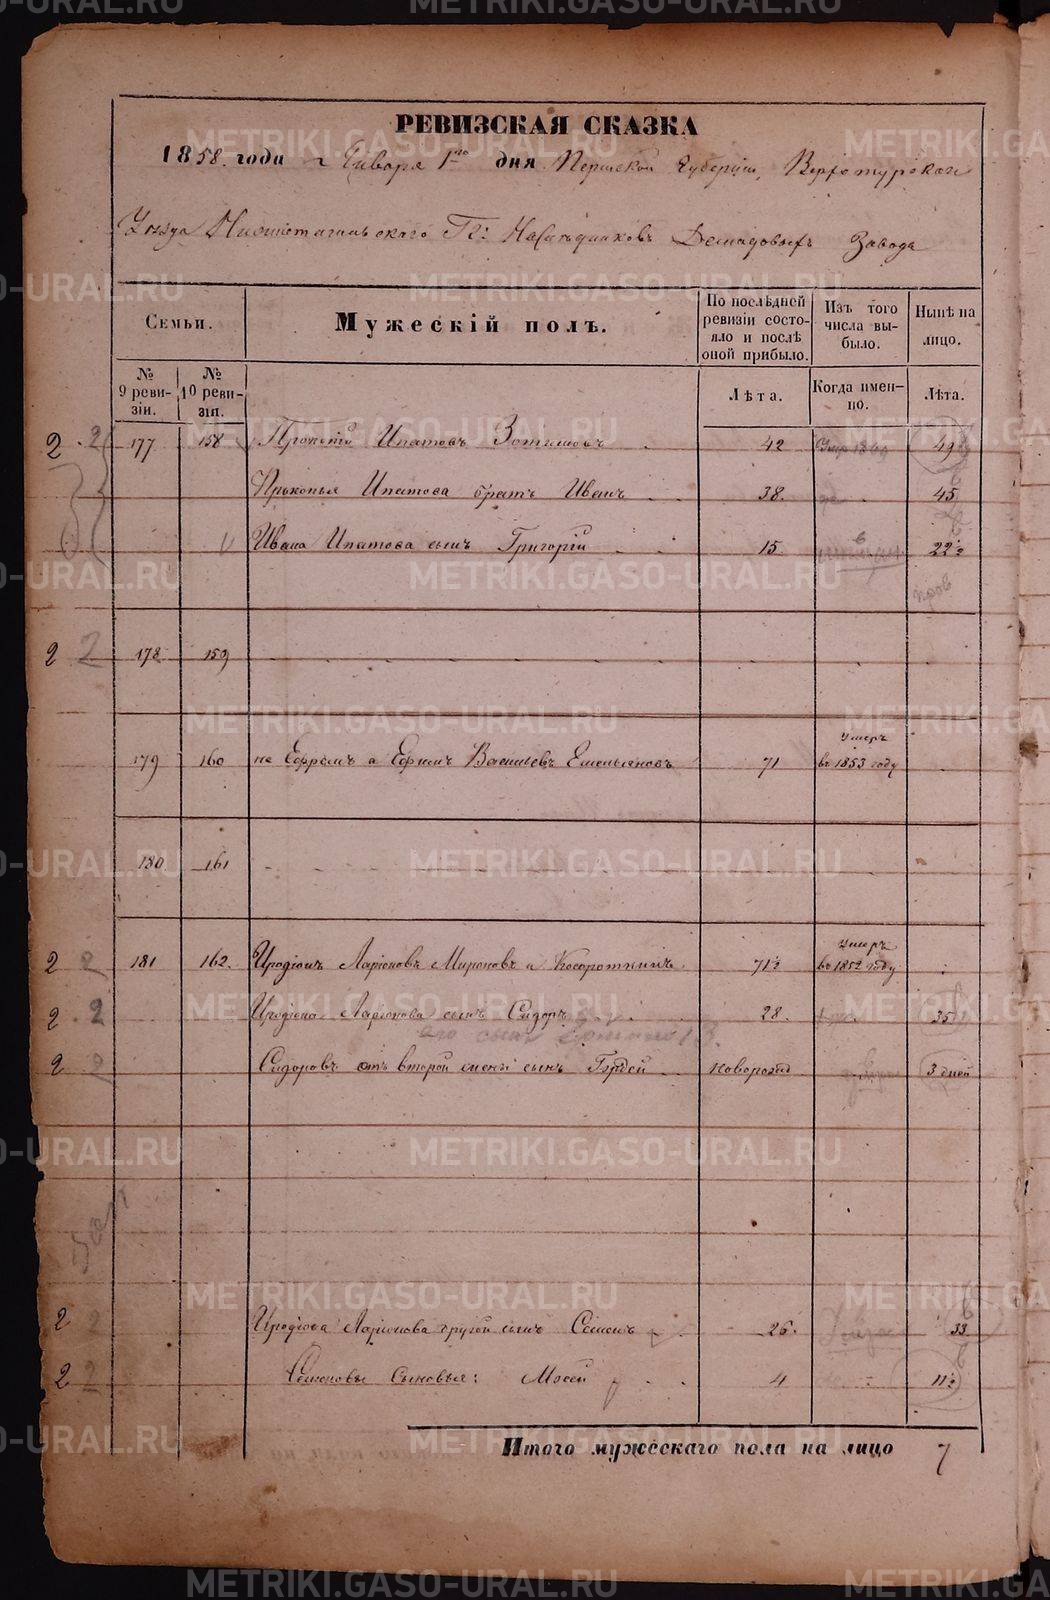 РЕВИЗСКАЯ СКАЗКА
1858 года Января 1го дня Пермской Губернии, Верхотурскаго
Уезда Нижнетагильскаго Гг: Наследниковъ Демидовыхъ Завода
Семьи.
Мужескій полъ.
По послѣдней ревизіи состояло и послѣ оной прибыло.
Изъ того числа выбыло.
Нынѣ на лицо.
№ 9 ревизіи.
№ 10 ревизія.
Лѣта.
Когда именно.
Лѣта.
2 2 177 158 Ипатовъ 42 49
Прокопья Ипатова братъ Иванъ 38. 45
Ивана Ипатова сынъ Григорій 15 22½
2 2 178 159
179 160 не Ефремъ а Ефимъ Васильевъ Емельяновъ 71 умеръ въ 1853 году
180 161
2 2 181 162. Иродіонъ Ларіоновъ Мироновъ и Косороткинъ 71½ умеръ въ 1852 году
2 2 Иродіона Ларіонова сынъ Сидоръ 28. 35
2 2 Сидоровъ отъ второй жены сынъ Гордей новорожд 3 дней
2 2 Иродіона Ларіонова другой сынъ Семенъ 26. 33
2 2 Семеновы Сыновья: Мосей 4 11½
Итого мужескаго пола на лицо 7
METRIKI.GASO-URAL.RU